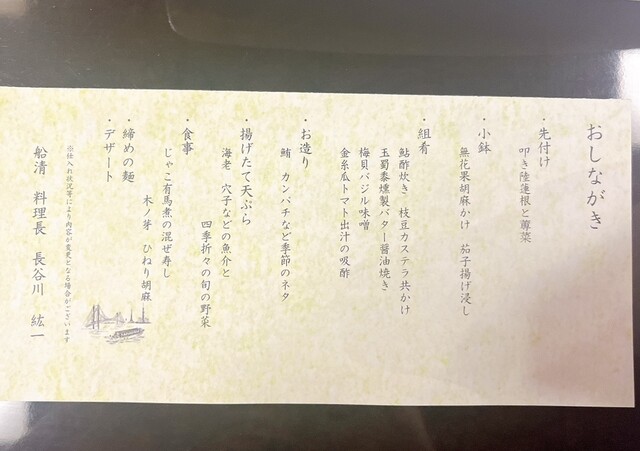 おしながき
・先付け
叩き陸蓮根と蓴菜
・小鉢
無花果胡麻かけ 茄子揚げ浸し
・組肴
鮎酢炊き 枝豆カステラ共かけ
玉蜀黍燻製バター醤油焼き
梅貝バジル味噌
金糸瓜トマト出汁の吸酢
・お造り
鮪 カンパチなど季節のネタ
・揚げたて天ぷら
海老 穴子などの魚介と
四季折々の旬の野菜
・食事
じゃこ有馬煮の混ぜ寿し
木ノ芽 ひねり胡麻
・締めの麺
・デザート
※仕入れ状況等により内容が変更となる場合がございます
船清 料理長 長谷川 紘一